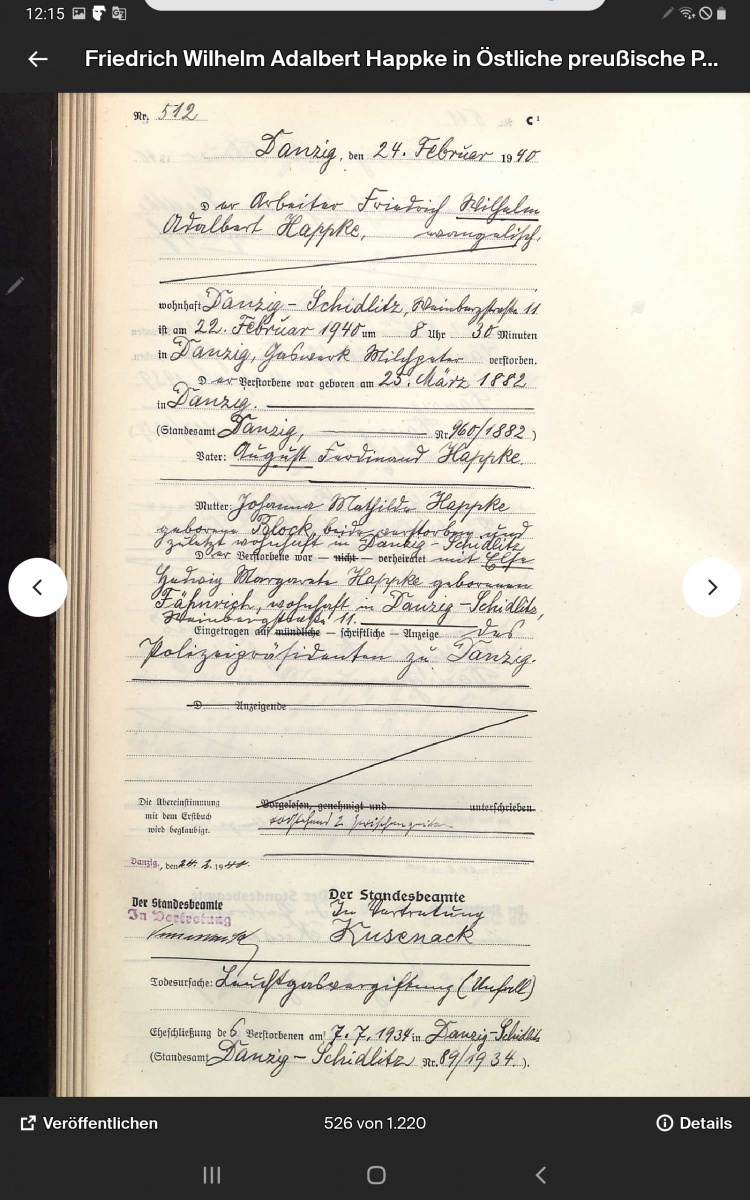 12:15
Friedrich Wilhelm Adalbert Happke in Östliche preußische P...
Nr. 512
C¹
Danzig, den 24. Februar 1940
Der Arbeiter Friedrich Wilhelm
Adalbert Happke, evangelisch,
wohnhaft Danzig - Schidlitz, Weinbergstraße 11
ist am 22. Februar 1940 um 8 Uhr 30 Minuten
in Danzig, Gaswerk Milchpeter verstorben.
Der Verstorbene war geboren am 25. März 1882
in Danzig.
(Standesamt Danzig, Nr. 960/1882)
Vater: August Ferdinand Happke.
Mutter: Johanna Mathilde Happke
geborene Block, beide verstorben und
zuletzt wohnhaft in Danzig - Schidlitz
Der Verstorbene war — nicht — verheiratet mit Else
Hedwig Margarete Happke geborenen
Fähnrich, wohnhaft in Danzig - Schidlitz,
Weinbergstraße 11.
Eingetragen auf mündliche — schriftliche — Anzeige des
Polizeipräsidenten zu Danzig.
D Anzeigende
Vorgelesen, genehmigt und unterschrieben
vorstehend 2 Zwischenzeilen
Die Übereinstimmung
mit dem Erstbuch
wird beglaubigt.
Danzig, den 24. 2. 1940.
Der Standesbeamte
In Vertretung
Der Standesbeamte
In Vertretung
Kusenack
Todesursache: Leuchtgasvergiftung (Unfall)
Eheschließung des Verstorbenen am 7.7.1934 in Danzig-Schidlitz
(Standesamt Danzig - Schidlitz Nr. 89/1934.).
Veröffentlichen
526 von 1.220
Details